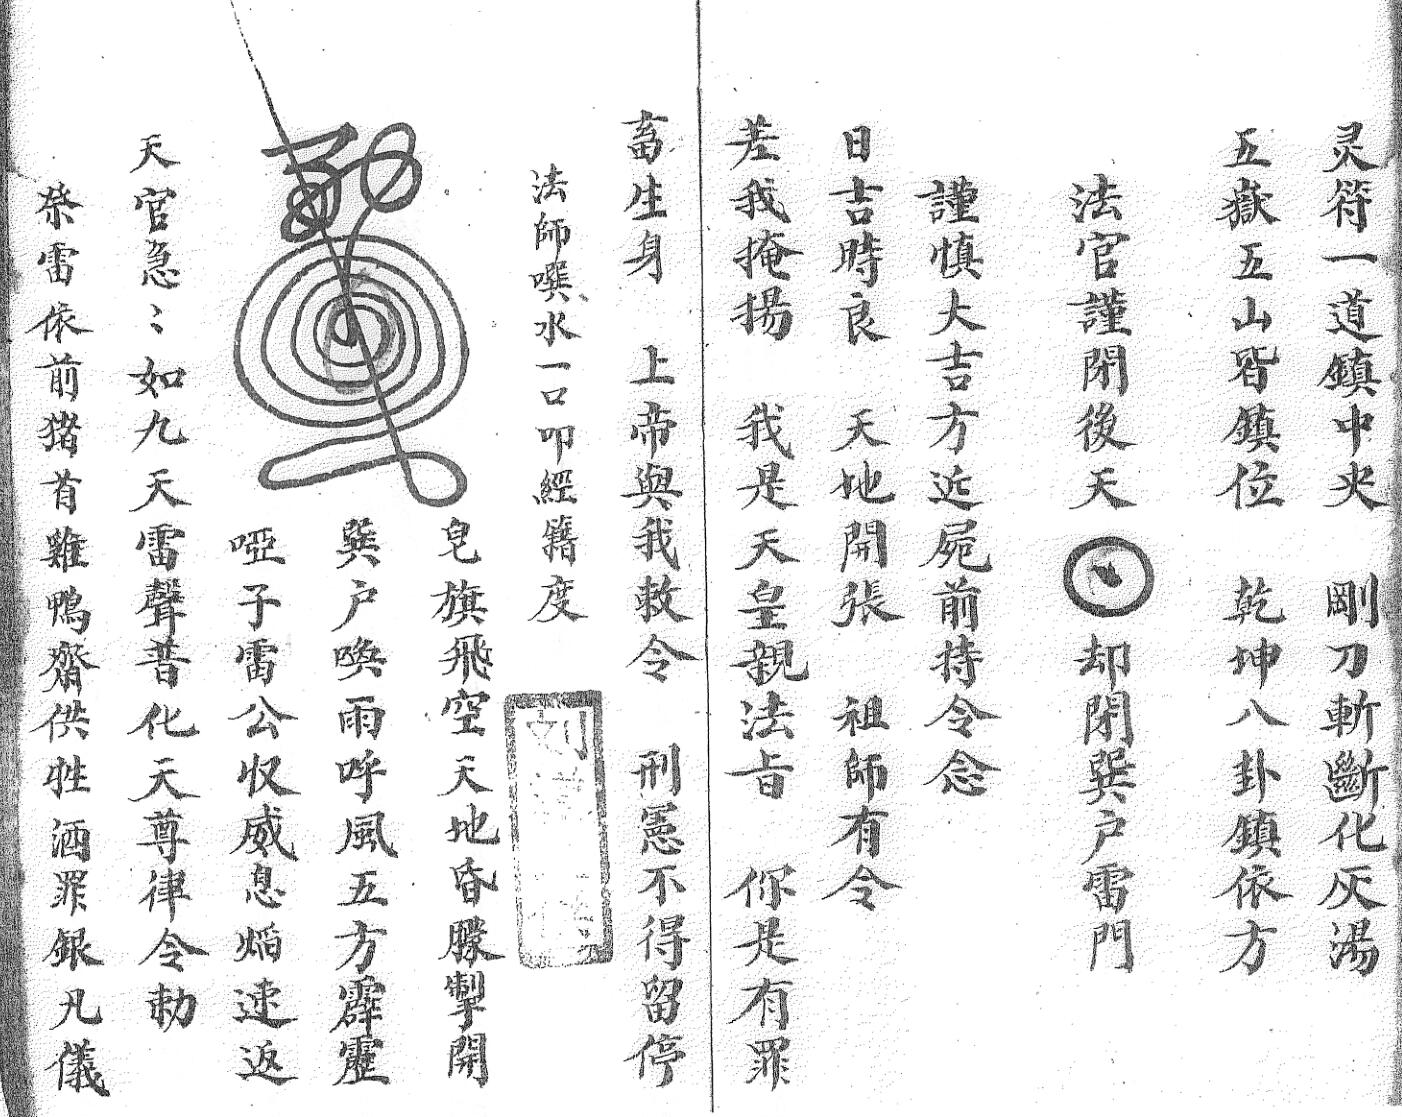 灵符一道鎮中央　剛刀斬斷化灰湯
五嶽五山皆鎮位　乾坤八卦鎮依方
法官謹閉後天　却閉巽户雷門
謹慎大吉方近屍前持令念
日吉時良　天地開張　祖師有令
差我掩揚　我是天皇親法旨　你是有罪
畜生身　上帝與我敕令　刑憲不得留停
法師噀水一口叩經籍度
皂旗飛空天地昏朦掣開
巽户喚雨呼風五方霹靂
啞子雷公収威息熖速返
天官急〻如九天雷聲普化天尊律令勅
祭雷依前猪首雞鴨齋供牲洒罪銀凡儀